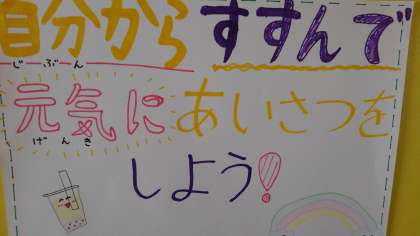 自分からすすんで
じぶん
元気にあいさつを
げんき
しよう!